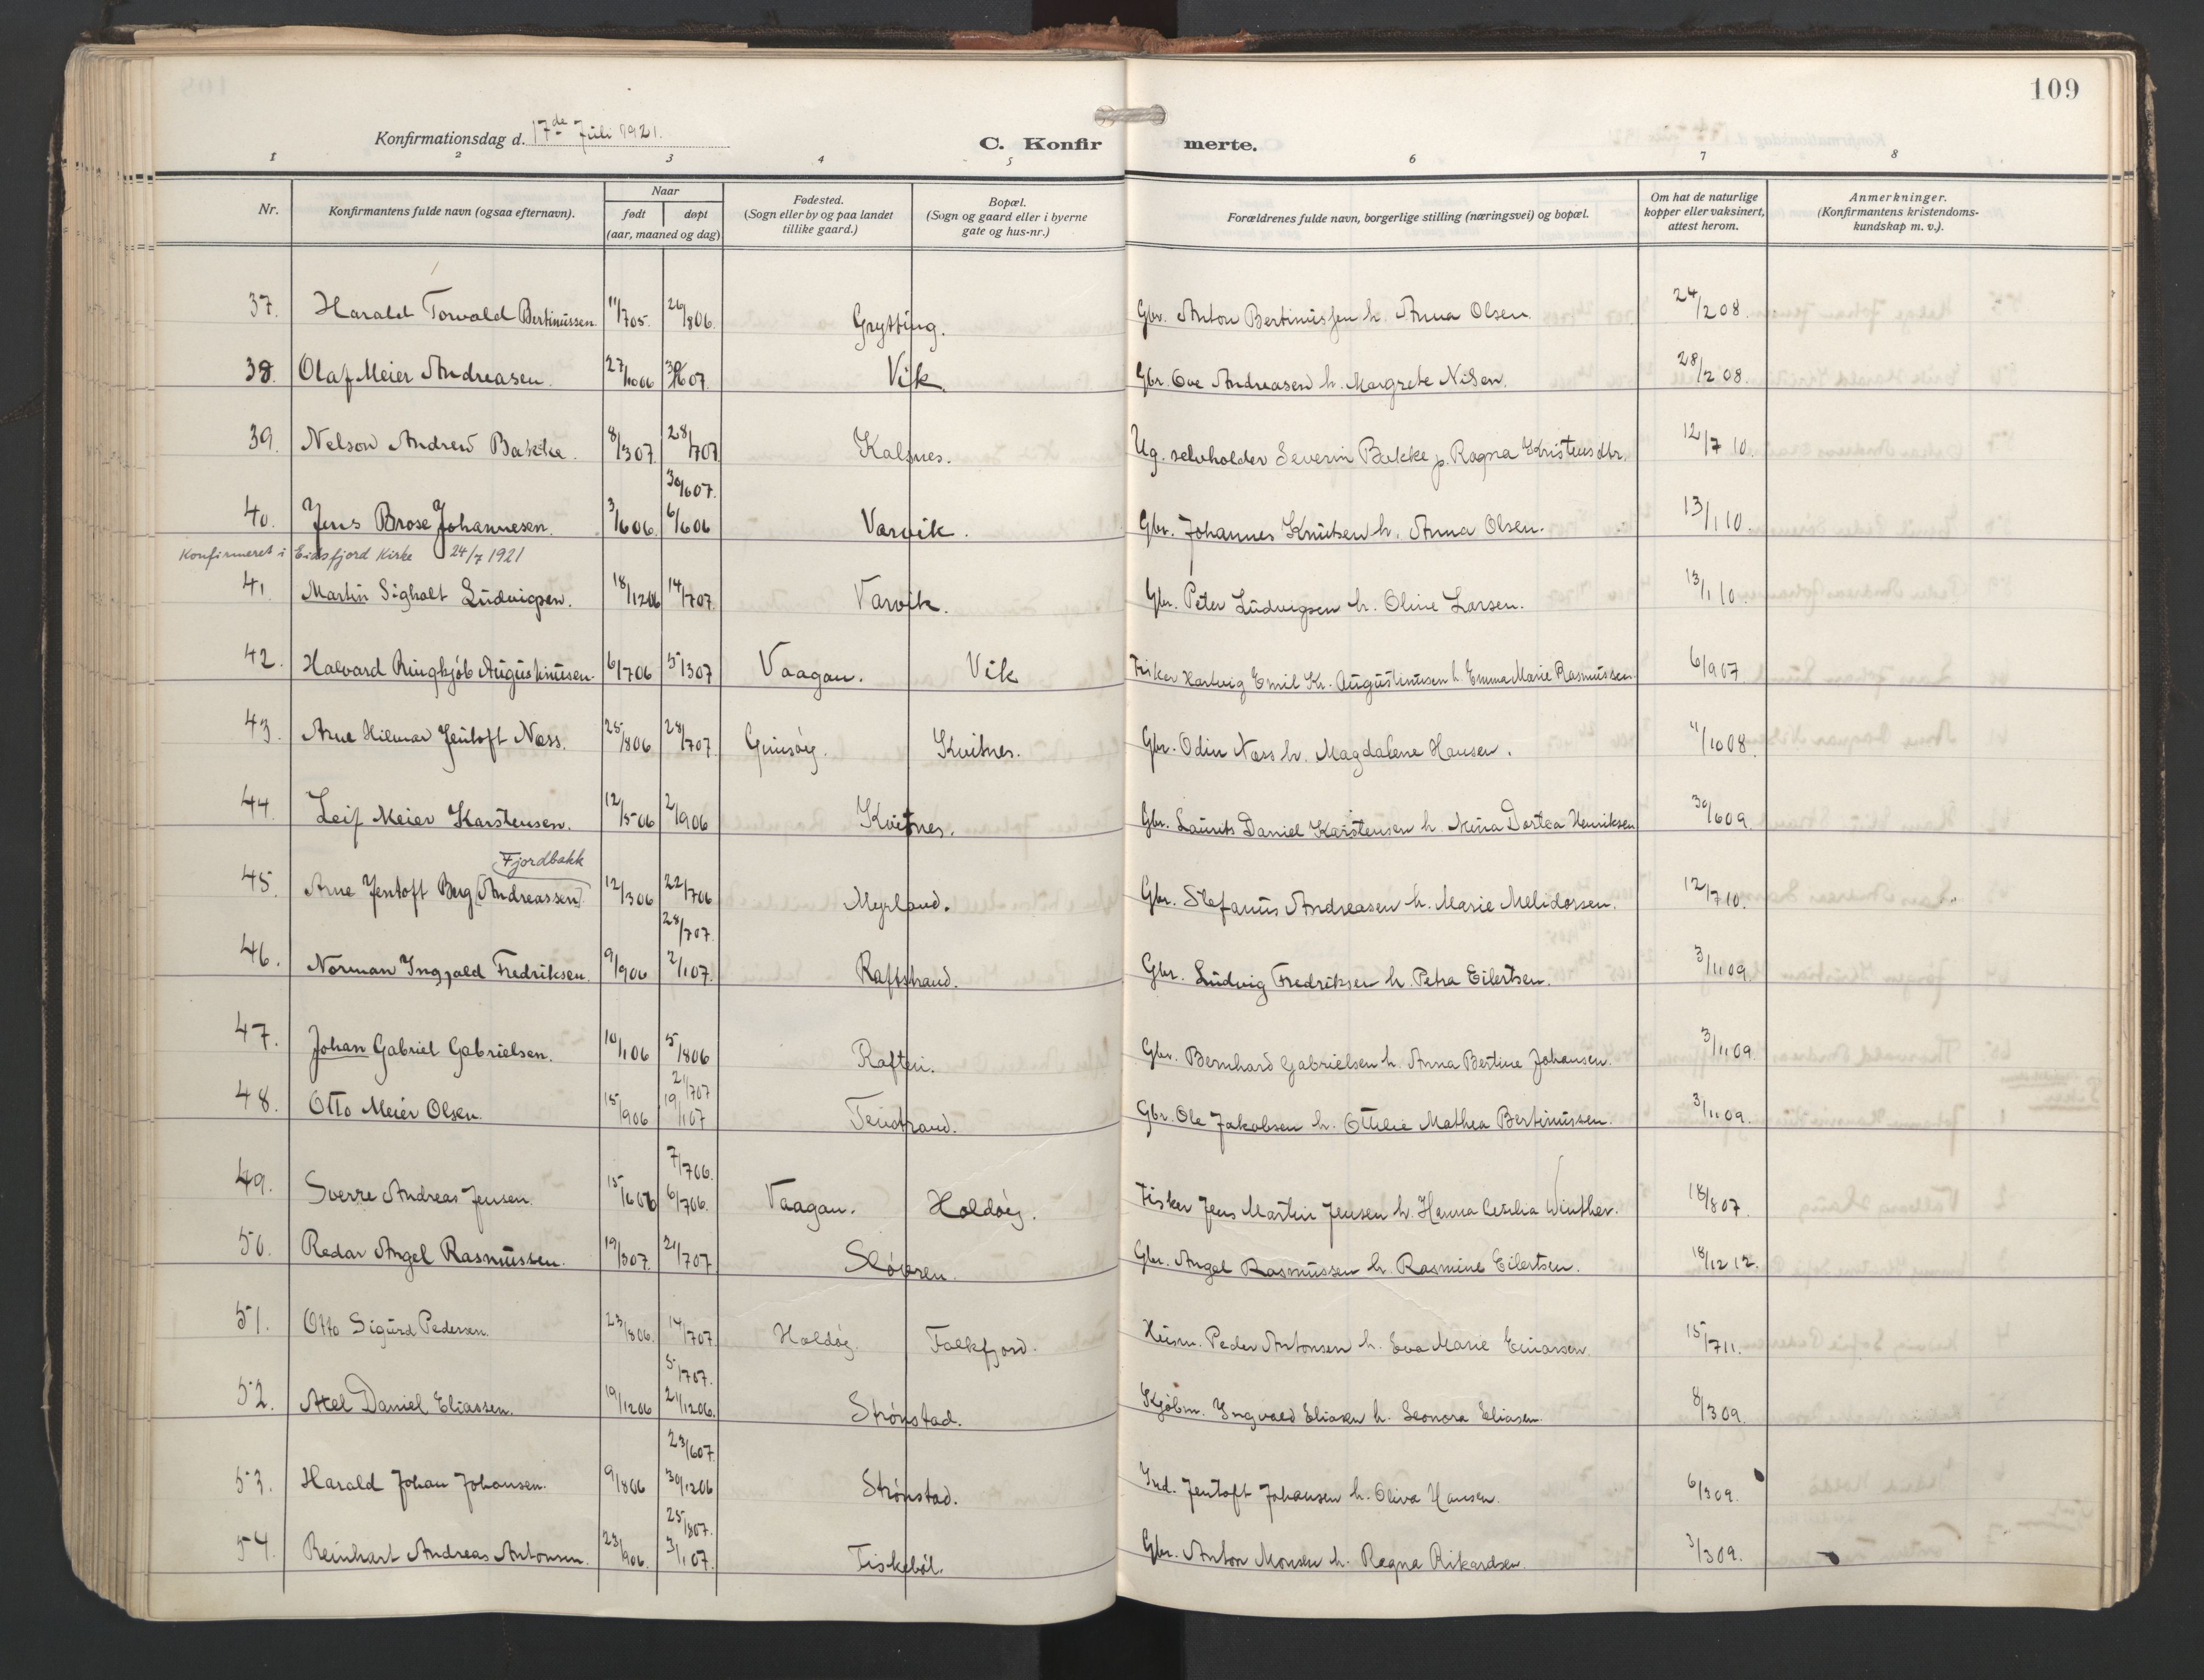 109
Konfirmationsdag d. 17de Juli 1921.
C. Konfirmerte.
1 2 3 4 5 6 7 8
Nr. Konfirmantens fulde navn (ogsaa efternavn). Naar født døpt (aar, maaned og dag) Fødested. (Sogn eller by og paa landet tillike gaard.) Bopæl. (Sogn og gaard eller i byerne gate og hus-nr.) Forældrenes fulde navn, borgerlige stilling (næringsvei) og bopæl. Om hat de naturlige kopper eller vaksinert, attest herom. Anmerkninger. (Konfirmantens kristendoms-kundskap m. v.).
37. Harald Torvald Bertinussen. 11/705. 26/806. Grytting. Gbr. Anton Bertinussen h. Anna Olsen. 24/208.
38. Olaf Meier Andreasen. 27/1006 607. Vik Gbr. Ove Andreasen h. Margrete Nilsen. 28/208.
39. Nelson Andrew Bakke. 8/307. 28/707. Kalsnes. Ug. selvholder Severin Bakke p. Ragna Kristensdtr. 12/710.
30/607.
40. Jens Brose Johannesen. 3/606. 6/606 Varvik. Gbr. Johannes Knutsen h. Anna Olsen. 13/110.
Konfirmeret i Eidsfjord Kirke 24/7 1921
41. Martin Sigholt Ludvigsen. 18/1206 14/707. Varvik. Gbr. Peter Ludvigsen h. Oline Larsen. 13/110.
42. Halvard Ringkjøb Augustinusen. 6/706 5/307 Vaagan. Vik Fisker Hartvig Emil Kr. Augustinusen h. Emma Marie Rasmussen. 6/907
43. Arne Hilmar Jentoft Næss. 25/806. 28/707. Gimsøy. Kvitnes. Gbr. Odin Næss h. Magdalene Hansen. 4/1008.
44. Leif Meier Karstensen. 12/506 2/906 Kvitnes. Gbr. Laurits Daniel Karstensen h. Nina Dortea Henriksen 30/609.
Fjordbakk
45. Arne Jentoft Berg [Andreassen] 12/306 22/706 Myrland. Gbr. Stefanus Andreasen h. Marie Melidorsen. 12/710.
28/707.
46. Norman Ingjald Fredriksen. 9/906 2/107. Raftstrand. Gbr. Ludvig Fredriksen h. Petra Eilertsen. 3/1109.
47. Johan Gabriel Gabrielsen. 10/106 5/806 Raften. Gbr. Bernhard Gabrielsen h. Anna Bertine Johansen. 3/1109.
21/707
48. Otto Meier Olsen. 15/906 19/107 Tenstrand. Gbr. Ole Jakobsen h. Ottilie Mathea Bertinussen. 3/1109.
7/706.
49. Sverre Andreas Jensen. 15/606 6/706. Vaagan. Holdøy. Fisker Jens Martin Jensen h. Hanna Cecilia Winther. 18/807.
50. Redar Angel Rasmussen. 19/307. 21/707 Sløveren. Gbr. Angel Rasmussen h. Rasmine Eilertsen. 18/1212.
51. Otto Sigurd Pedersen. 23/806. 14/707 Holdøy. Falkfjord. Husm. Peder Antonsen h. Eva Marie Einarsen. 15/711.
5/707.
52. Axel Daniel Eliassen. 19/1206 21/1206. Strønstad. Kjøbm. Ingvald Eliasen h. Leonora Eliasen. 8/309.
23/607
53. Harald Johan Johansen. 9/806 30/1206 Strønstad. Ind. Jentoft Johansen h. Oliva Hansen. 6/309.
25/807.
54. Reinhart Andreas Antonsen. 23/906. 3/107. Fiskebøl. Gbr. Anton Monsen h. Ragna Rikardsen. 3/309.